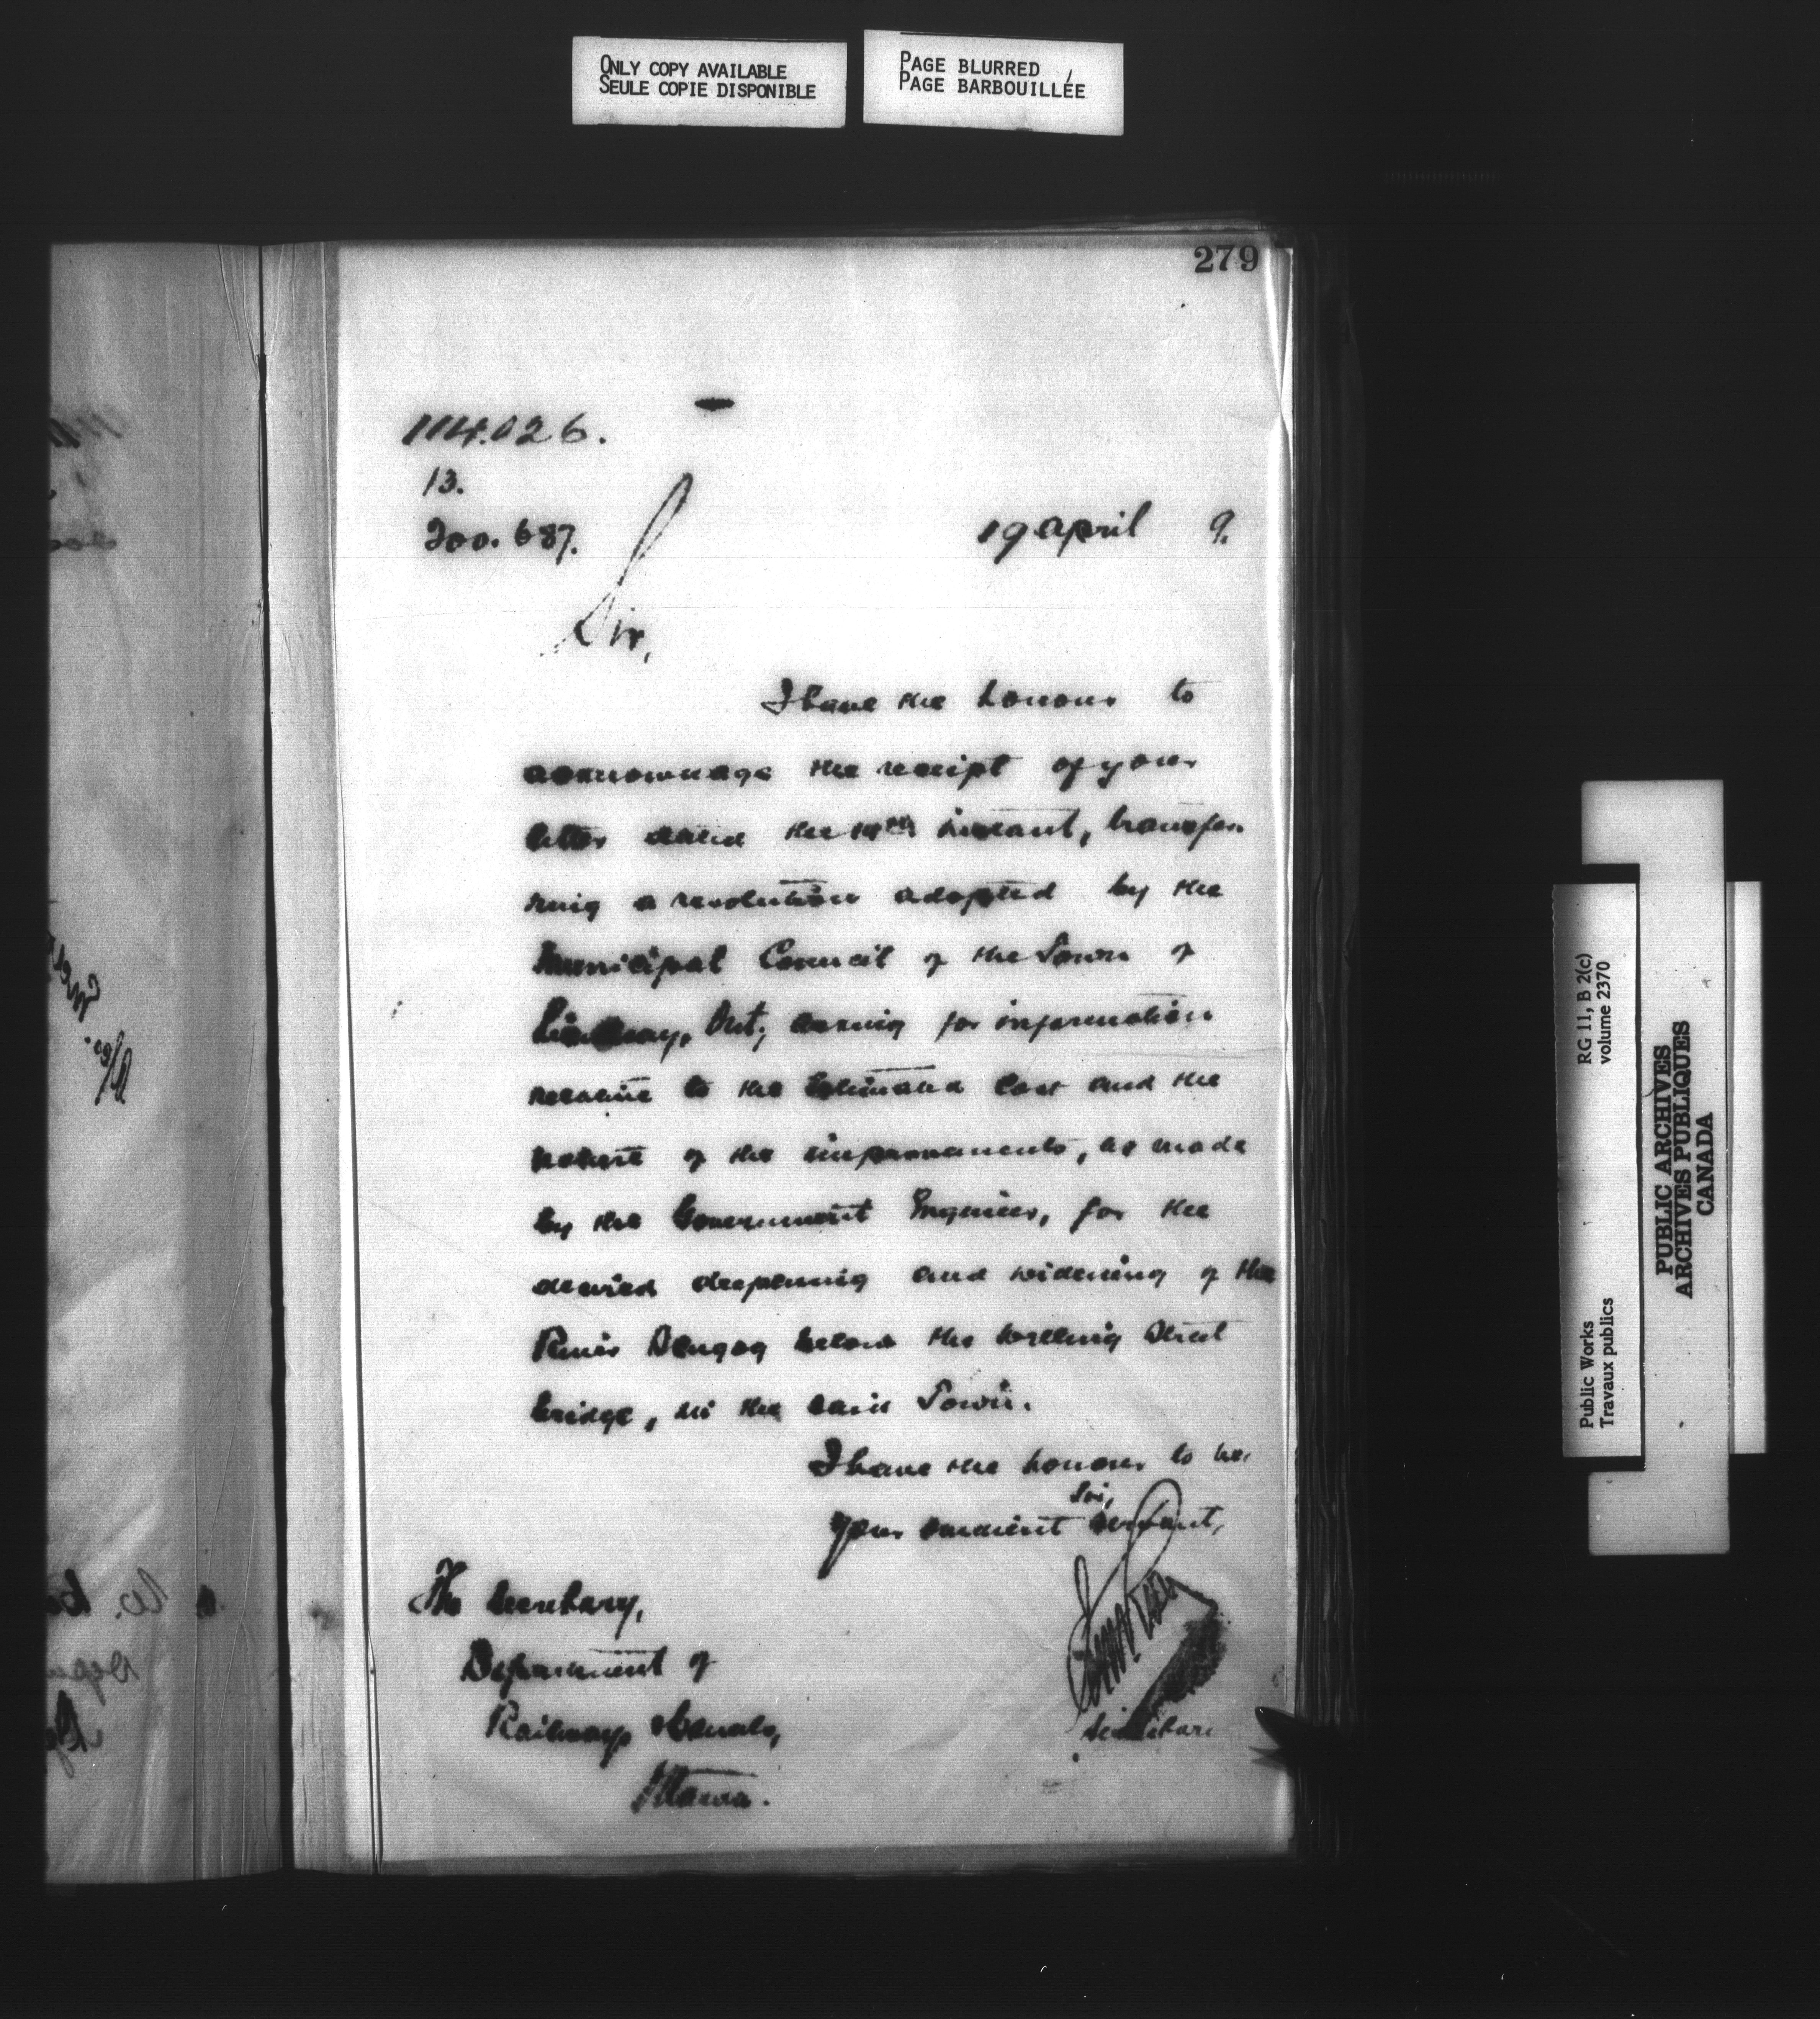 ONLY COPY AVAILABLE
SEULE COPIE DISPONIBLE
PAGE BLURRED
PAGE BARBOUILLÉE
279
114.026.
13.
200.687.
19 April 9.
Sir,
I have the honour to
acknowledge the receipt of your
letter dated the instant, transfer
ring a resolution adopted by the
Municipal Council of the Town of
Lindsay, Ont; asking for information
relative to the estimated cost and the
nature of the improvements, as made
by the Government Engineer, for the
desired deepening and widening of the
River Scugog below the Street
bridge, in the said Town.
I have the honour to be,
Sir,
Your obedient servant,
The Secretary,
Department of
Railways & Canals,
Ottawa.
Secretary
RG 11, B 2(c)
volume 2370
Public Works
Travaux publics
PUBLIC ARCHIVES
ARCHIVES PUBLIQUES
CANADA